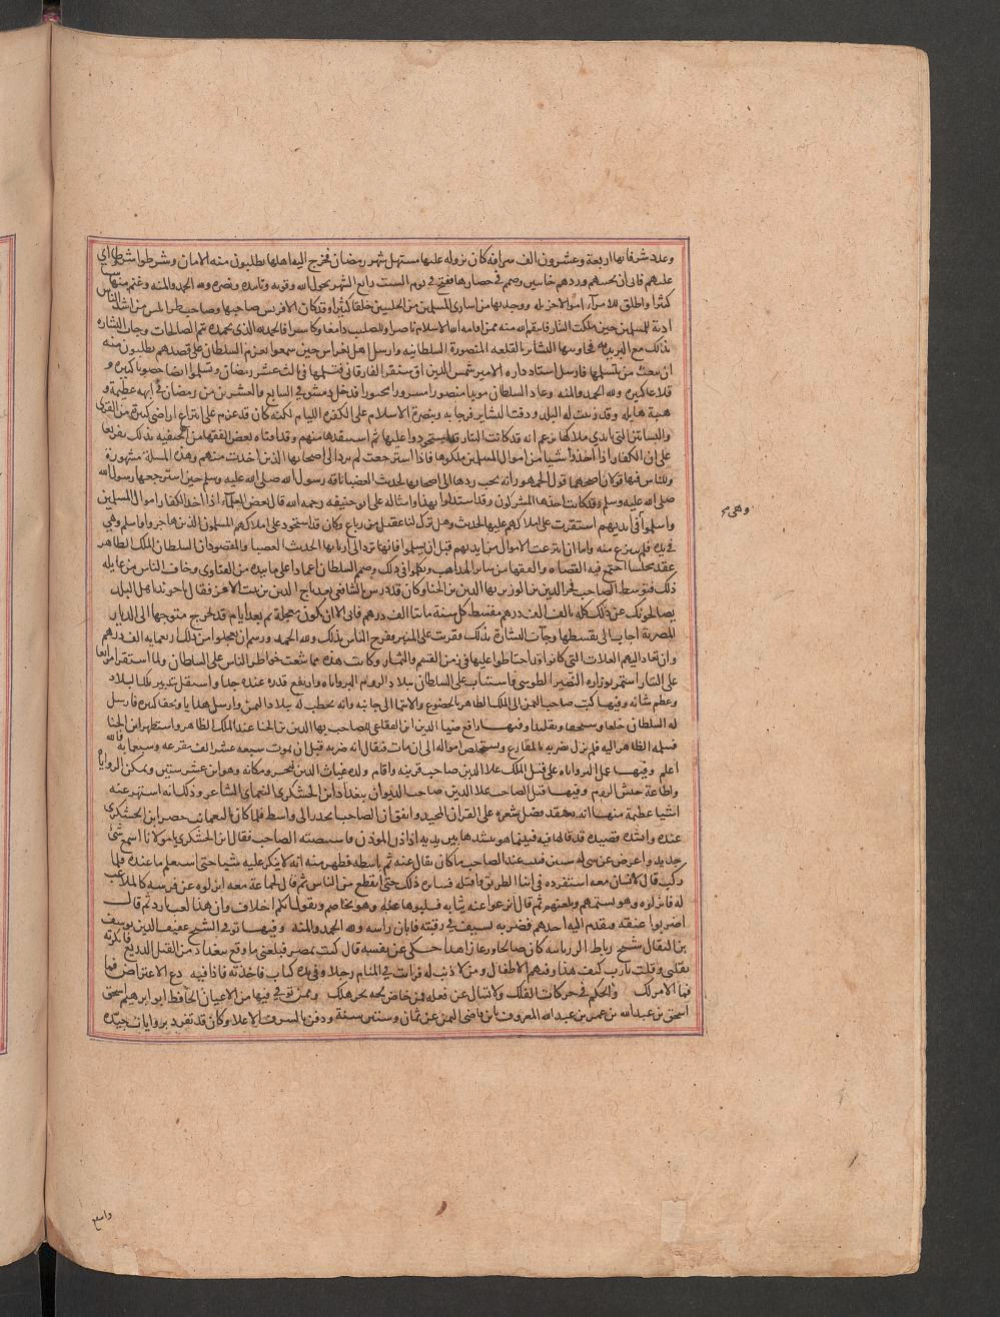 وعدد شرفاتها اربعة وعشرون الف شرافه كان نزوله عليها مستهل شهر رمضان فخرج اليه اهلها يطلبون منه الامان وشرطوا شروطا
عليهم فابى ان يجيبهم وردهم خايبين وصمم في حصارها ففتح في يوم السبت رابع الشهر بحول الله وقوته وتاييده ونصره ولله الحمد والمنه وغنم منها
كثيرا واطلق للامراء اموالا جزيله ووجد بها من اسارى المسلمين من الحلبيين خلقا كثيرا وقد كان الابرنس صاحبها وصاحب طرابلس من اشد الناس
اذية للمسلمين حين ملكت التتار فانتقم الله منه ممن اقامه الله للاسلام ناصرا وللصليب دامغا وكاسرا فالحمد لله الذي بحمده تتم الصالحات وجات البشاره
بذلك مع البريديه فجاوبتها البشاير بالقلعه المنصورة السلطانيه وارسل اهل بغراس حين سمعوا بعزم السلطان على قصدهم يطلبون منه
ان يبعث من يتسلمها فارسل استاد داره الامير شمس الدين اق سنقر الفارقاني فتسلمها في ثالث عشر رمضان وتسلموا ايضا حصونا كبيره و
قلاعا كثيره ولله الحمد والمنه وعاد السلطان مويدا منصورا مسرورا محبورا فدخل دمشق في السابع والعشرين من رمضان في ابهه عظيمة و
هيبة هايله وقد زينت له البلد ودقت البشاير فرحا به وبنصرة الاسلام على الكفره الليام لكنه كان قد عزم على انتزاع اراضي كثيرة من القرى
والبساتين التي بايدي ملاكها بزعم انه قد كانت التتار قد استحوذوا عليها ثم استنقذها منهم وقد افتاه بعض الفقها من الحنفيه بذلك تفريعا
على ان الكفار اذا اخذوا شيا من اموال المسلمين ملكوها فاذا استرجعت لم ترد الى اصحابها الذين اخذت منهم وهذه المسلة مشهورة
وللناس فيها قولان اصحهما قول الجمهور انه يجب ردها الى اصحابها لحديث العضبا ناقه رسول الله صلى الله عليه وسلم حين استرجعها رسول الله
صلى الله عليه وسلم وقد كانت اخذها المشركون وقد استدلوا بهذا وامثاله على ابي حنيفه رحمه الله قال بعض العلماء اذا اخذ الكفار اموال المسلمين
واسلموا وهي في ايديهم استقرت على املاكهم عليها الحديث وهل ترك لنا عقيل من رباع وكان قد استحوذ على املاكهم المسلمون الذين هاجروا واسلم وهي
في يده فلم ينزع منه واما ان انتزعت الاموال من ايديهم قبل ان يسلموا فانها ترد الى اربابها الحديث العضبا والمقصود ان السلطان الملك الظاهر
عقد مجلسا اجتمع فيه القضاه والفقها من ساير المذاهب وتكلموا في ذلك وصمم السلطان اعتمادا على ما بيده من الفتاوى وخاف الناس من غايله
ذلك فتوسط الصاحب فخر الدين بن الوزير بها الدين بن الحنا وكان قد درس بالشافعي بعد تاج الدين بن بنت الاعز فقال ياخوند اهل البلد
يصالحونك عن ذلك كله بالف الف درهم مقسط كل سنة ماتا الف درهم فابى الا ان تكون معجلة ثم بعد ايام قد خرج متوجها الى الديار
المصرية اجاب الى تقسيطها وجآت البشارة بذلك وقرئت على المنبر وفرح الناس بذلك ولله الحمد ورسم ان يعجلوا من ذلك اربعمايه الف درهم
وان تعاد اليهم الغلات التي كانوا قد احتاطوا عليها في زمن القسم والثمار وكانت هذه مما شعثت خواطر الناس على السلطان ولما استقر امر ابغا
على التتار استمر بوزاره النصير الطوسي واستناب على السلطان ببلاد الروم البرواناه وارتفع قدره عنده جدا واستقل بتدبير تلك البلاد
وعظم شانه وفيها كتب صاحب اليمن الى الملك الظاهر بالخضوع والانتما الى جانبه وانه يخطب له ببلاد اليمن وارسل هدايا وتحفا كثيره فارسل
له السلطان خلعا وسنجقا وتقليدا وفيها رافع ضيا الدين ابن الفقاعي للصاحب بها الدين بن الحنا عند الملك الظاهر واستظهر ابن الحنا
فسلمه الظاهر اليه فلم يزل يضربه بالمقارع ويستخلص امواله الى ان مات فيقال انه ضربه قبل ان يموت سبعه عشر الف مقرعه وسبعمايه فالله
اعلم وفيها عمل البرواناه على قتل الملك علا الدين صاحب قونيه واقام ولده غياث الدين كيخسرو مكانه وهو ابن عشر سنين وتمكن البرواناه
واطاعة جيش الروم وفيها قتل الصاحب علا الدين صاحب الديوان ببغداد ابن الخشكري النعماني الشاعر وذلك انه اشتهر عنه
اشيا عظيمة منها انه يعتقد فضل شعره على القران المجيد واتفق ان الصاحب انحدر الى واسط فلما كان بالنعمانيه حضر ابن الخشكري
عنده وانشده قصيده قد قالها فيه فبينما هو ينشدها بين يديه اذ اذن الموذن فاستنصته الصاحب فقال ابن الخشكري يا مولانا اسمع شيا
جديدا واعرض عن شي له سنين فثبت عند الصاحب ما كان يقال عنه ثم باسطه فظهر منه انه لا ينكر عليه شيا حتى استعلم ما عنده فلما
ركب قال لانسان معه استفرده في اثنا الطريق واقتله فسايره ذلك حتى انقطع من الناس ثم قال لجماعة معه انزلوه عن فرسه كالملاعب
له فانزلوه وهو يشتمهم ويلعنهم ثم قال انزعوا عنه ثيابه فسلبوها عنه وهو يخاصم ويقول انكم اجلاف وان هذا لعب بارد ثم قال
اضربوا عنقه فتقدم اليه احدهم فضربه بسيف في رقبته فابان راسه ولله الحمد والمنه وفيها توفي الشيخ عفيف الدين يوسف
بن البقال شيخ رباط المرزبانيه كان صالحا ورعا زاهدا حكى عن نفسه قال كنت بمصر فبلغني ما وقع ببغداد من القتل الذريع فانكرته
بقلبي وقلت يارب كيف هذا وفيهم الاطفال ومن لا ذنب له فرايت في المنام رجلا وفي يده كتاب فاخذته فاذا فيه دع الاعتراض فما
فما الامر لك والحكم في حركات الفلك ولا تسال عن فعله فمن خاض لجه بحر هلك وممن توفي فيها من الاعيان الحافظ ابو ابرهيم اسحق
اسحق بن عبد الله بن عمر بن عبد الله المعروف بابن قاضي اليمن عن ثمان وستين سنة ودفن بالشرف الاعلا وكان قد تفرد بروايات جيده
وهي صح
واسمع